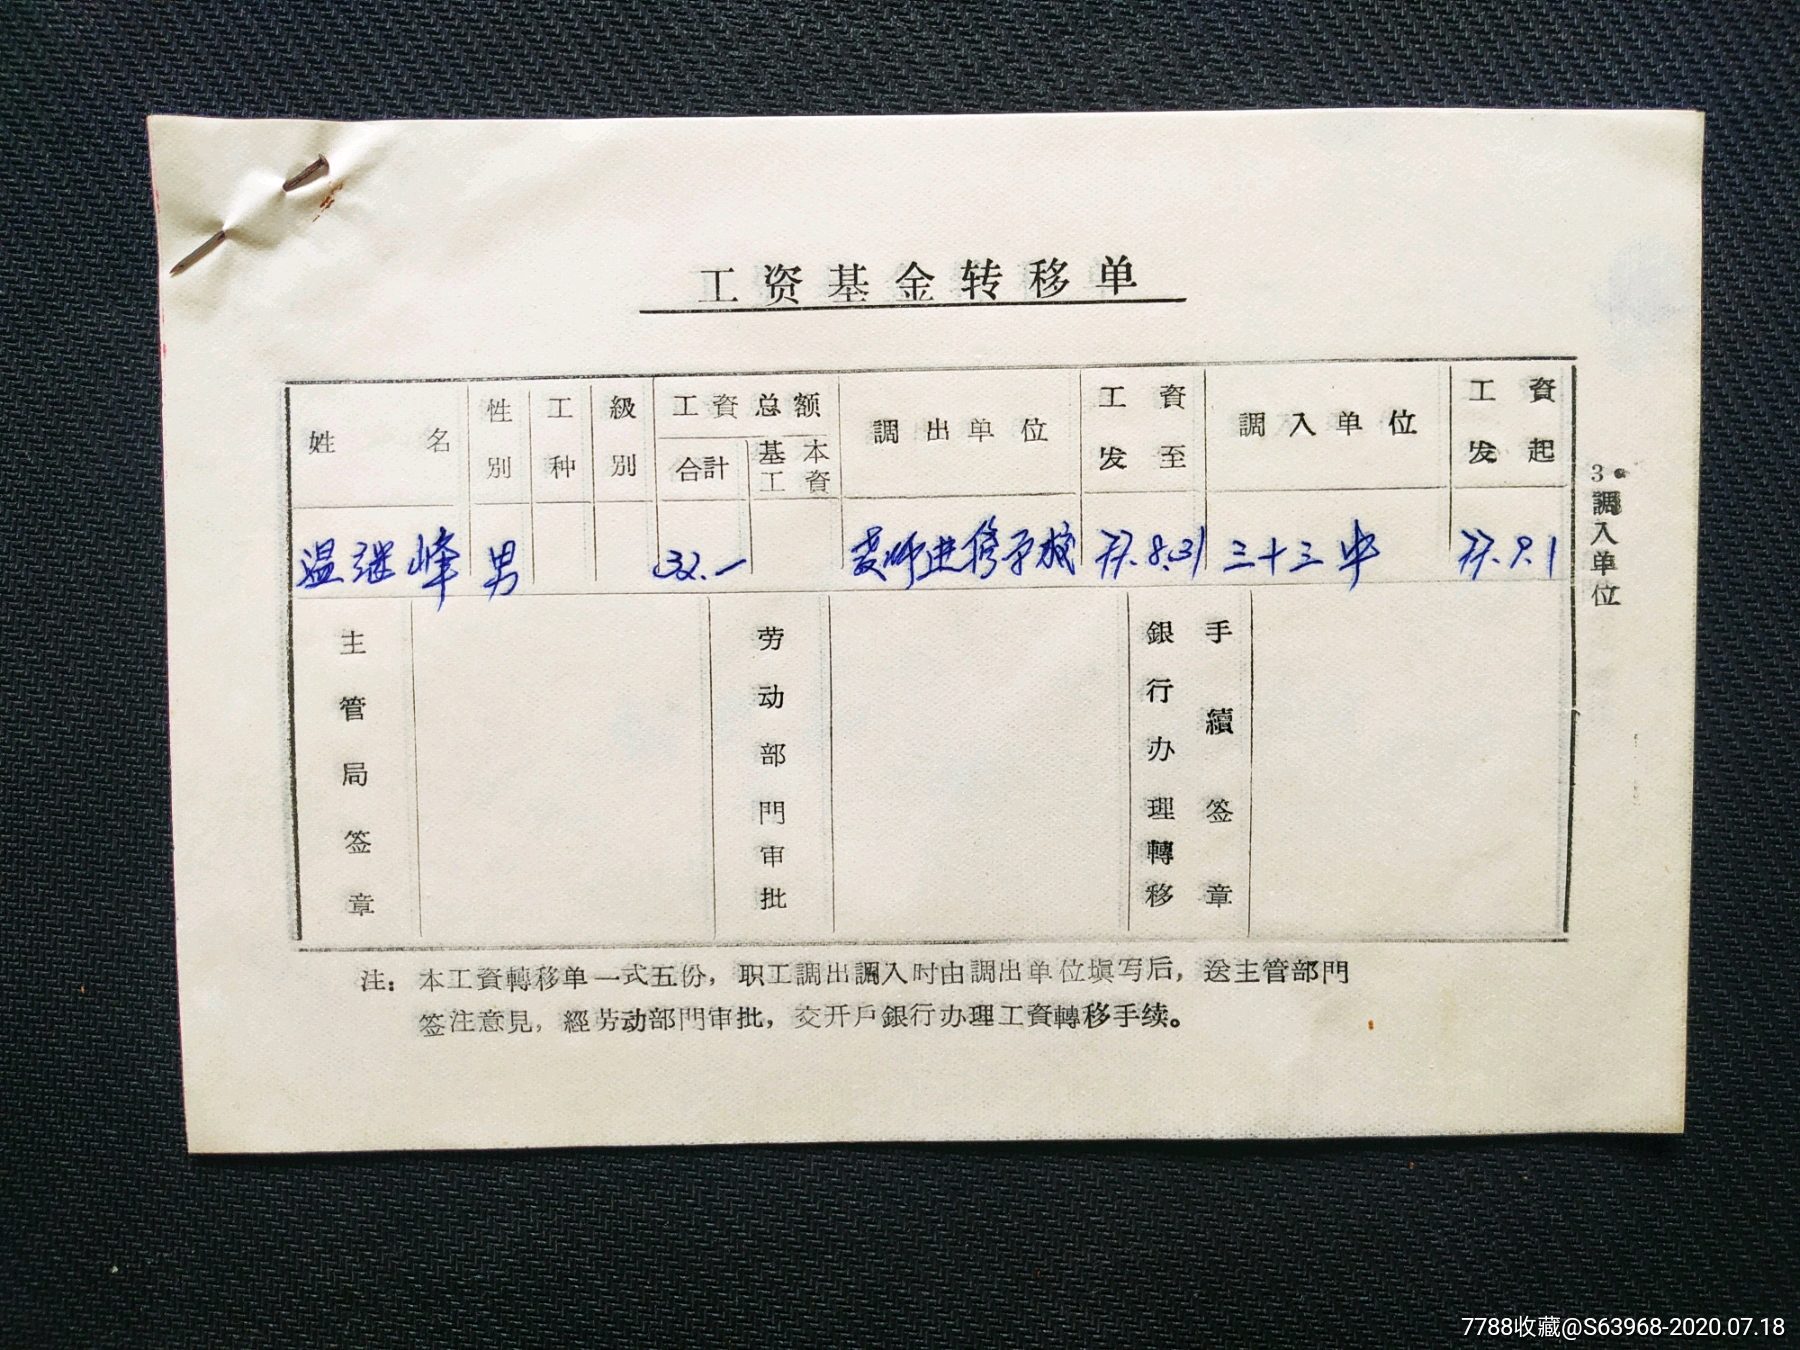 工资基金转移单
姓名 性别 工种 級别 工資总额 合計 基本工資 調出单位 工資发至 調入单位 工資发起
温继峰 男 32.一 师进修学校 77.8.31 三十三中 77.9.1
主管局签章 劳动部門审批 銀行办理轉移手續签章
3。調入单位
注：本工資轉移单一式五份，职工調出調入时由調出单位填写后，送主管部門
签注意見，經劳动部門审批，交开戶銀行办理工資轉移手续。
7788收藏@S63968-2020.07.18